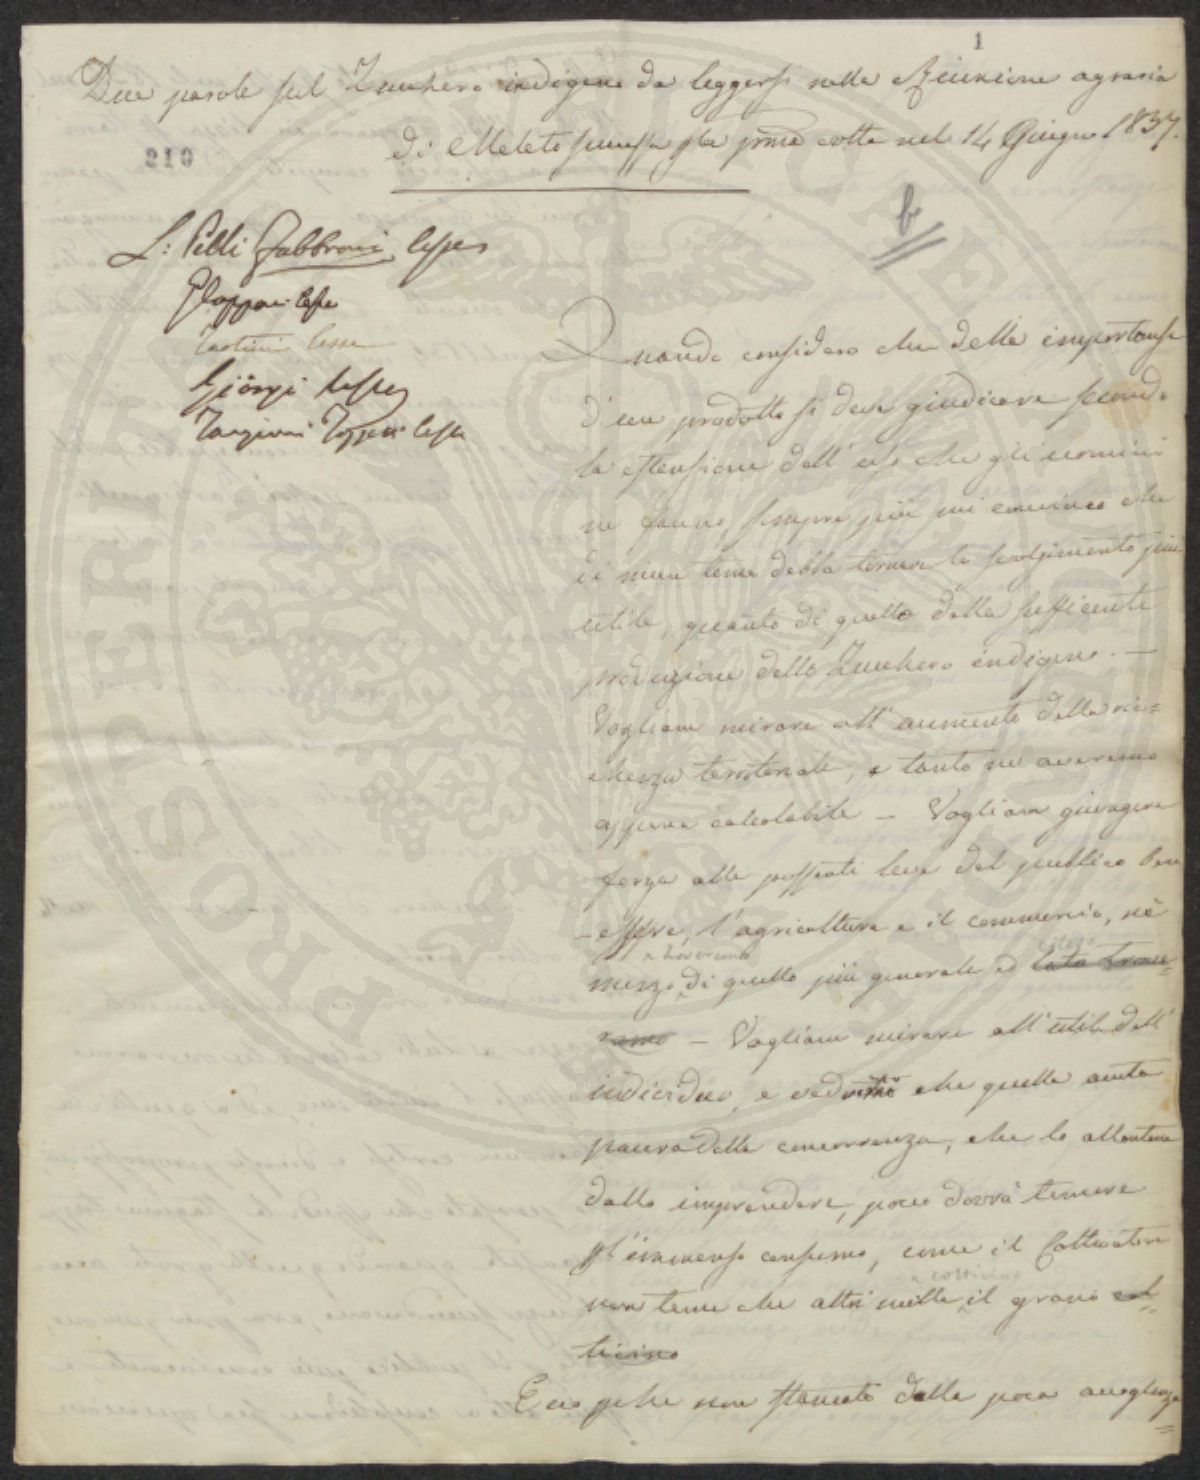 1
Due parole sul Zucchero indigeno da leggersi nella Riunione agraria
di Meleto scussa pla prima volta nel 14 Giugno 1837.
210
b
L: Pelli Fabbroni Cess
Tartini Cess
Giorgi
Targioni Tozzetti Cess
Quando considero che della importanza
d'un prodotto si deve giudicare secondo
la estensione dell'uso che gli uomini
ne fanno, sempre più mi convinco che
di niun tema debba tornare lo svolgimento più
utile, quanto di quello della sufficiente
produzione dello Zucchero indigeno. —
Vogliam mirare all'aumento della ric=
chezza territoriale, e tanto ne averemo
appena calcolabile — Vogliam giungere
forza alle possenti leve del pubblico ben
-essere, l'agricoltura e il commercio, nè
troveremo
mezzo di quello più generale ed lato trove=
esteso
remo — Vogliam mirare all'utile dell'
individuo, e vedremo che quella avita
paura della concorrenza, che lo allontana
dallo imprendere, poco dovrà temere
pl'immenso consumo, come il Coltivatore
coltivino
non teme che altri mille il grano col=
tivino
Ecco pche non stancato dalla poca accoglienza=
PROSPERITÀ